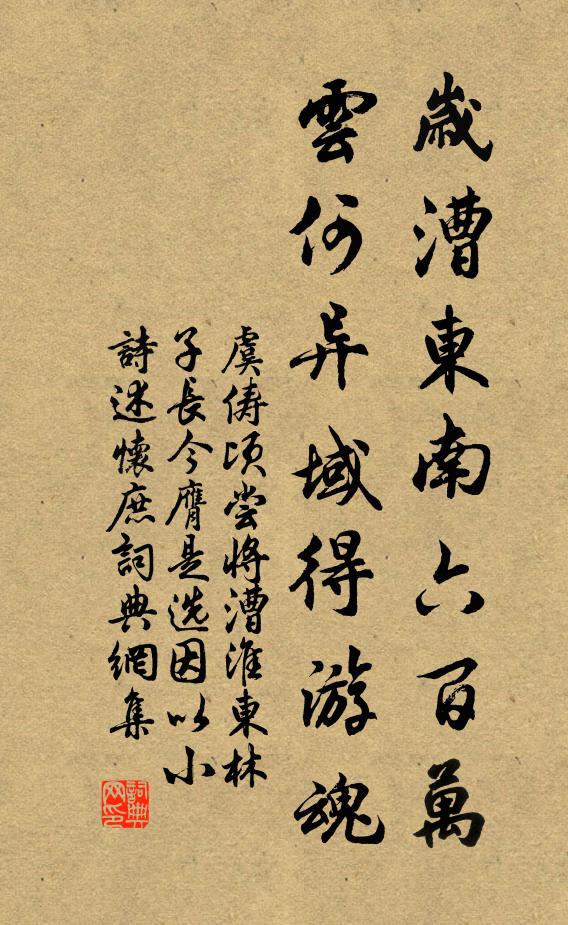 歲漕東南六百萬
雲何异域得游魂
虞儔頃嘗將漕淮東林
子長今膺是选因以小
詩述懷庶詞典網集
詞典网印